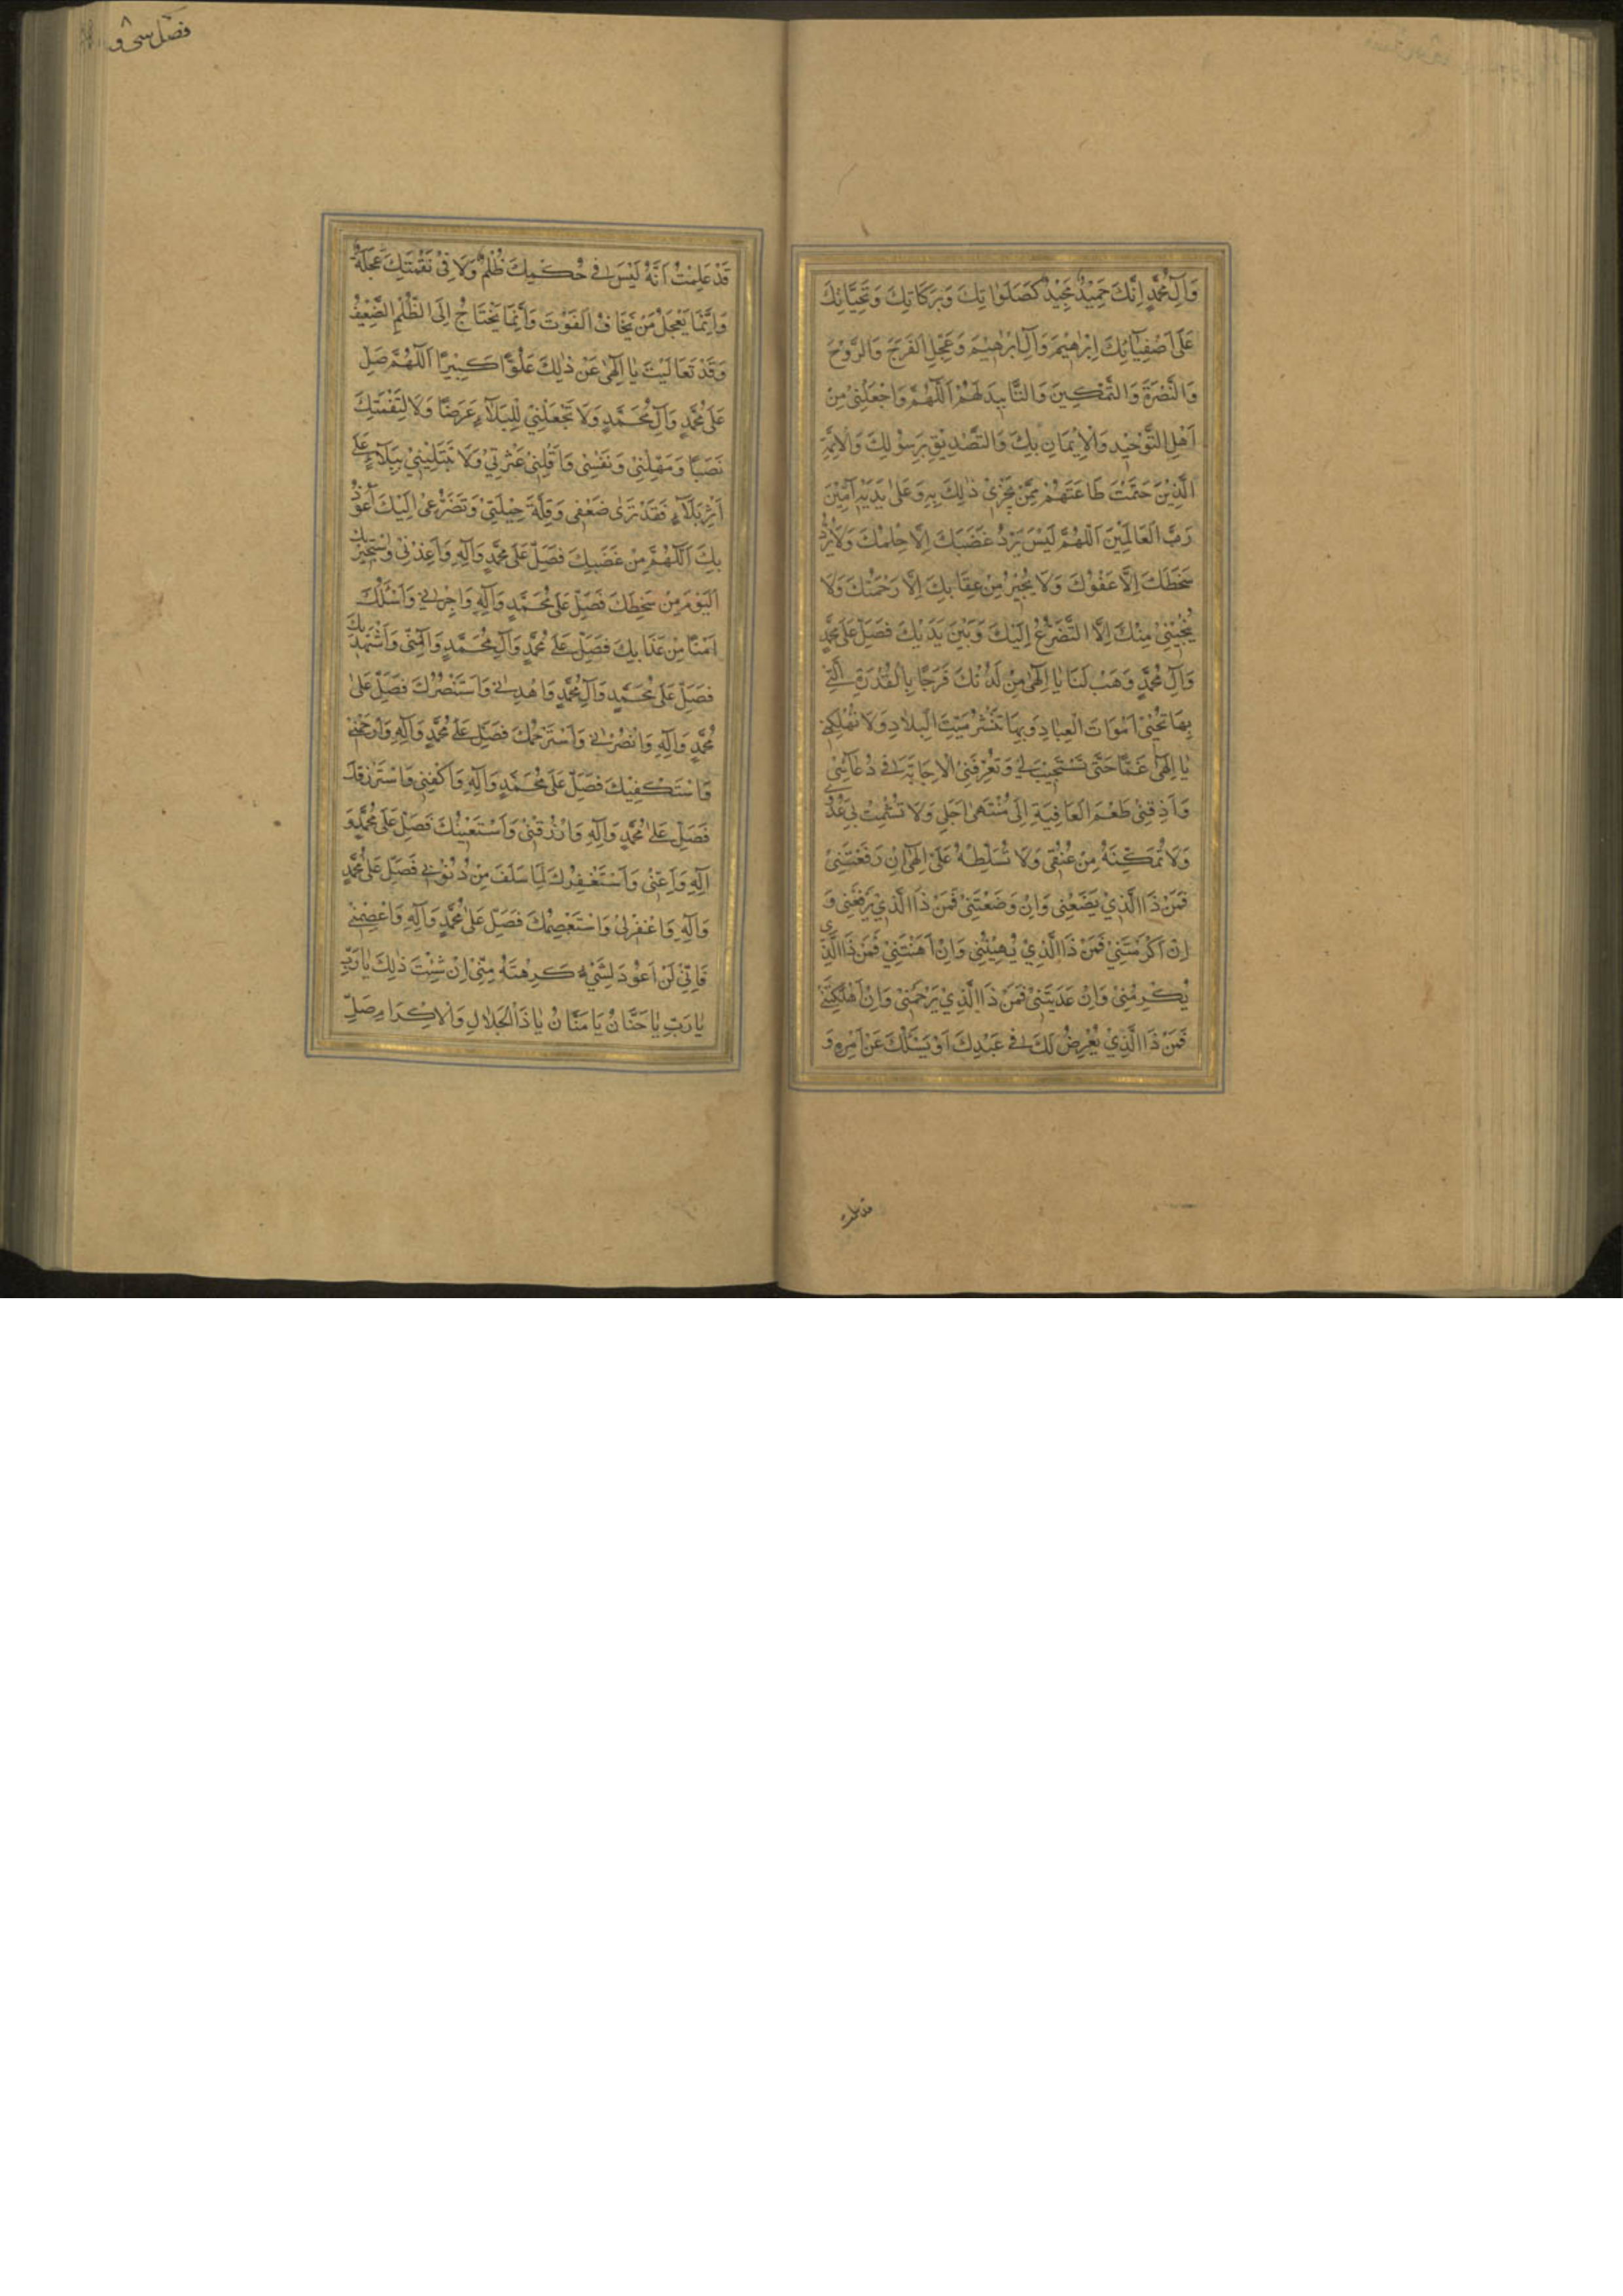 وَآلِ مُحَمَّدٍ اِنَّكَ حَمِيْدٌ مَجِيْدٌ كَصَلَوَاتِكَ وَبَرَكَاتِكَ وَتَحِيَّاتِكَ
عَلَى اَصْفِيَآئِكَ اِبْرٰهِيْمَ وَآلِ اِبْرٰهِيْمَ وَعَجِّلِ الْفَرَجَ وَالرَّوْحَ
وَالنُّصْرَةَ وَالتَّمْكِيْنَ وَالتَّاْيِيدَ لَهُمْ اَللّٰهُمَّ وَاجْعَلْنِيْ مِنْ
اَهْلِ التَّوْحِيْدِ وَالْاِيْمَانِ بِكَ وَالتَّصْدِيْقِ بِرَسُوْلِكَ وَالْاَئِمَّةِ
الَّذِيْنَ حَتَمْتَ طَاعَتَهُمْ مِمَّنْ يَجْرِيْ ذٰلِكَ بِهِ وَعَلٰى يَدَيْهِ آمِيْنَ
رَبَّ الْعَالَمِيْنَ اَللّٰهُمَّ لَيْسَ يَرُدُّ غَضَبَكَ اِلَّا حِلْمُكَ وَلَا يَرُدُّ
سَخَطَكَ اِلَّا عَفْوُكَ وَلَا يُجِيْرُ مِنْ عِقَابِكَ اِلَّا رَحْمَتُكَ وَلَا
يُنْجِيْنِيْ مِنْكَ اِلَّا التَّضَرُّعُ اِلَيْكَ وَبَيْنَ يَدَيْكَ فَصَلِّ عَلٰى مُحَمَّدٍ
وَآلِ مُحَمَّدٍ وَهَبْ لَنَا يَا اِلٰهِيْ مِنْ لَدُنْكَ فَرَجًا بِالْقُدْرَةِ الَّتِيْ
بِهَا تُحْيِيْ اَمْوَاتَ الْعِبَادِ وَبِهَا تَنْشُرُ مَيْتَ الْبِلَادِ وَلَا تُهْلِكْنِيْ
يَا اِلٰهِيْ غَمًّا حَتّٰى تَسْتَجِيْبَ لِيْ وَتُعَرِّفَنِيْ الْاِجَابَةَ فِيْ دُعَآئِيْ
وَاَذِقْنِيْ طَعْمَ الْعَافِيَةِ اِلٰى مُنْتَهٰى اَجَلِيْ وَلَا تُشْمِتْ بِيْ عَدُوِّيْ
وَلَا تُمَكِّنْهُ مِنْ عُنُقِيْ وَلَا تُسَلِّطْهُ عَلَيَّ اِلٰهِيْ اِنْ رَفَعْتَنِيْ
فَمَنْ ذَا الَّذِيْ يَضَعُنِيْ وَاِنْ وَضَعْتَنِيْ فَمَنْ ذَا الَّذِيْ يَرْفَعُنِيْ وَ
اِنْ اَكْرَمْتَنِيْ فَمَنْ ذَا الَّذِيْ يُهِيْنُنِيْ وَاِنْ اَهَنْتَنِيْ فَمَنْ ذَا الَّذِيْ
يُكْرِمُنِيْ وَاِنْ عَذَّبْتَنِيْ فَمَنْ ذَا الَّذِيْ يَرْحَمُنِيْ وَاِنْ اَهْلَكْتَنِيْ
فَمَنْ ذَا الَّذِيْ يَعْرِضُ لَكَ فِيْ عَبْدِكَ اَوْ يَسْئَلُكَ عَنْ اَمْرِهِ وَ
قد علمت
قَدْ عَلِمْتُ اَنَّهُ لَيْسَ فِيْ حُكْمِكَ ظُلْمٌ وَلَا فِيْ نَقْمَتِكَ عَجَلَةٌ
وَاِنَّمَا يَعْجَلُ مَنْ يَخَافُ الْفَوْتَ وَاِنَّمَا يَحْتَاجُ اِلَى الظُّلْمِ الضَّعِيْفُ
وَقَدْ تَعَالَيْتَ يَا اِلٰهِيْ عَنْ ذٰلِكَ عُلُوًّا كَبِيْرًا اَللّٰهُمَّ صَلِّ
عَلٰى مُحَمَّدٍ وَآلِ مُحَمَّدٍ وَلَا تَجْعَلْنِيْ لِلْبَلَآءِ غَرَضًا وَلَا لِنَقْمَتِكَ
نَصَبًا وَمَهِّلْنِيْ وَنَفِّسْنِيْ وَاَقِلْنِيْ عَثْرَتِيْ وَلَا تَبْتَلِيَنِّيْ بِبَلَآءٍ عَلٰى
اَثَرِ بَلَآءٍ فَقَدْ تَرٰى ضَعْفِيْ وَقِلَّةَ حِيْلَتِيْ وَتَضَرُّعِيْ اِلَيْكَ اَعُوْذُ
بِكَ اَللّٰهُمَّ مِنْ غَضَبِكَ فَصَلِّ عَلٰى مُحَمَّدٍ وَآلِهِ وَاَعِذْنِيْ وَاَسْتَجِيْرُ بِكَ
الْيَوْمَ مِنْ سَخَطِكَ فَصَلِّ عَلٰى مُحَمَّدٍ وَآلِهِ وَاَجِرْنِيْ وَاَسْئَلُكَ
اَمْنًا مِنْ عَذَابِكَ فَصَلِّ عَلٰى مُحَمَّدٍ وَآلِ مُحَمَّدٍ وَآمِنِّيْ وَاَسْتَهْدِيْكَ
فَصَلِّ عَلٰى مُحَمَّدٍ وَآلِ مُحَمَّدٍ وَاهْدِنِيْ وَاَسْتَنْصِرُكَ فَصَلِّ عَلٰى
مُحَمَّدٍ وَآلِهِ وَانْصُرْنِيْ وَاَسْتَرْحِمُكَ فَصَلِّ عَلٰى مُحَمَّدٍ وَآلِهِ وَارْحَمْنِيْ
وَاَسْتَكْفِيْكَ فَصَلِّ عَلٰى مُحَمَّدٍ وَآلِهِ وَاكْفِنِيْ وَاَسْتَرْزِقُكَ
فَصَلِّ عَلٰى مُحَمَّدٍ وَآلِهِ وَارْزُقْنِيْ وَاَسْتَعِيْنُكَ فَصَلِّ عَلٰى مُحَمَّدٍ وَ
آلِهِ وَاَعِنِّيْ وَاَسْتَغْفِرُكَ لِمَا سَلَفَ مِنْ ذُنُوْبِيْ فَصَلِّ عَلٰى مُحَمَّدٍ
وَآلِهِ وَاغْفِرْ لِيْ وَاَسْتَعْصِمُكَ فَصَلِّ عَلٰى مُحَمَّدٍ وَآلِهِ وَاعْصِمْنِيْ
فَاِنِّيْ لَنْ اَعُوْدَ لِشَيْءٍ كَرِهْتَهُ مِنِّيْ اِنْ شِئْتَ ذٰلِكَ يَا رَبِّ
يَا رَبِّ يَا حَنَّانُ يَا مَنَّانُ يَا ذَا الْجَلَالِ وَالْاِكْرَامِ صَلِّ